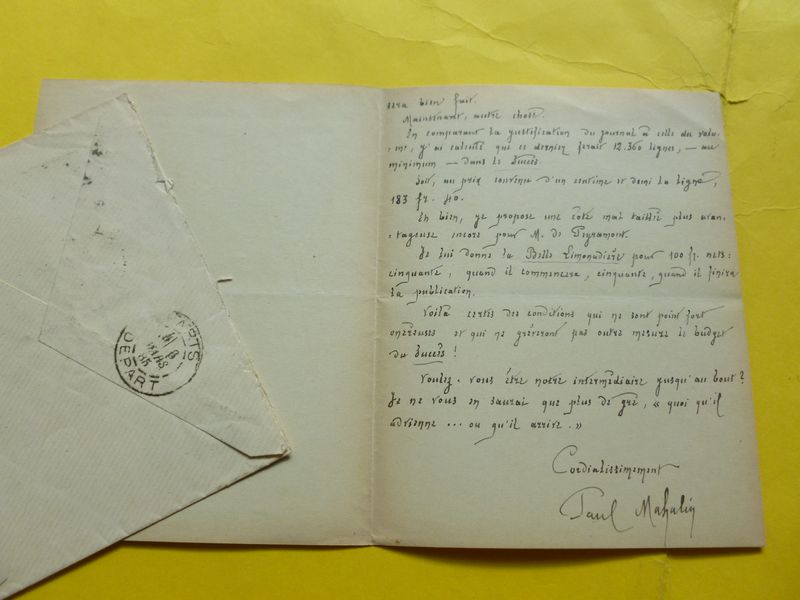 sera bien fait.
Maintenant, autre chose.
En comparant la justification du journal à celle du volu-
-me, j'ai calculé que ce dernier ferait 12.360 lignes, — au
minimum — dans le Succès.
Soit, au prix convenu d'un centime et demi la ligne,
183 fr. 40.
Eh bien, je propose une cote mal taillée plus avan-
-tageuse encore pour M. de Peyramont.
Je lui donne la Belle Limonadière pour 100 fr. nets:
cinquante, quand il commencera, cinquante, quand il finira
la publication.
Voilà certes des conditions qui ne sont point fort
onéreuses et qui ne grèveront pas outre mesure le budget
du Succès!
Voulez-vous être notre intermédiaire jusqu'au bout?
Je ne vous en saurai que plus de gré, « quoi qu'il
advienne ... ou qu'il arrive. »
Cordialissimement
Paul Mahalin
PARIS
MARS
85
DEPART